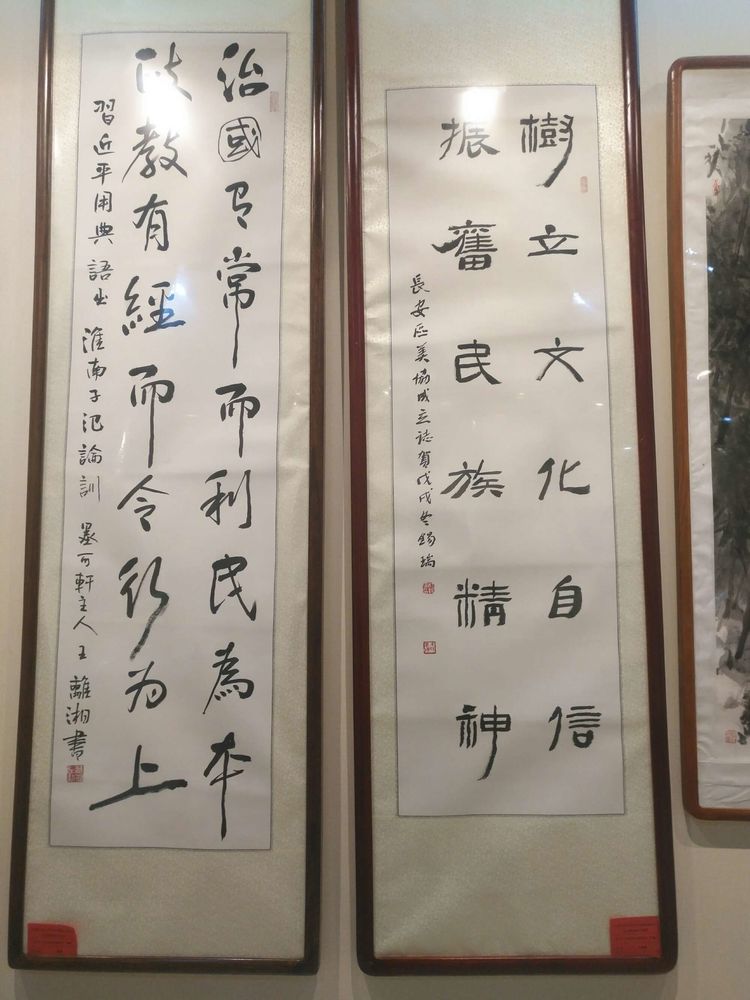 治國有常而利民為本
政教有經而令行為上
習近平用典語出淮南子氾論訓 墨可軒主人王離湘書
樹立文化自信
振奮民族精神
長安區美協成立誌賀戊戌冬錫瑞